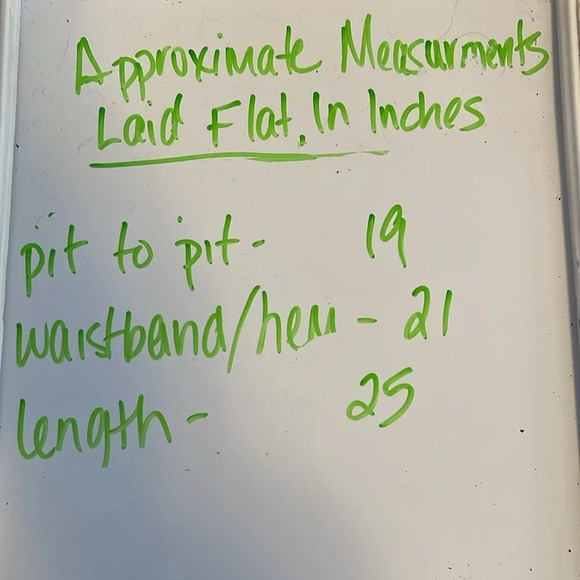 Approximate Measurments
Laid Flat, In Inches
pit to pit - 19
waistband/hem - 21
length - 25